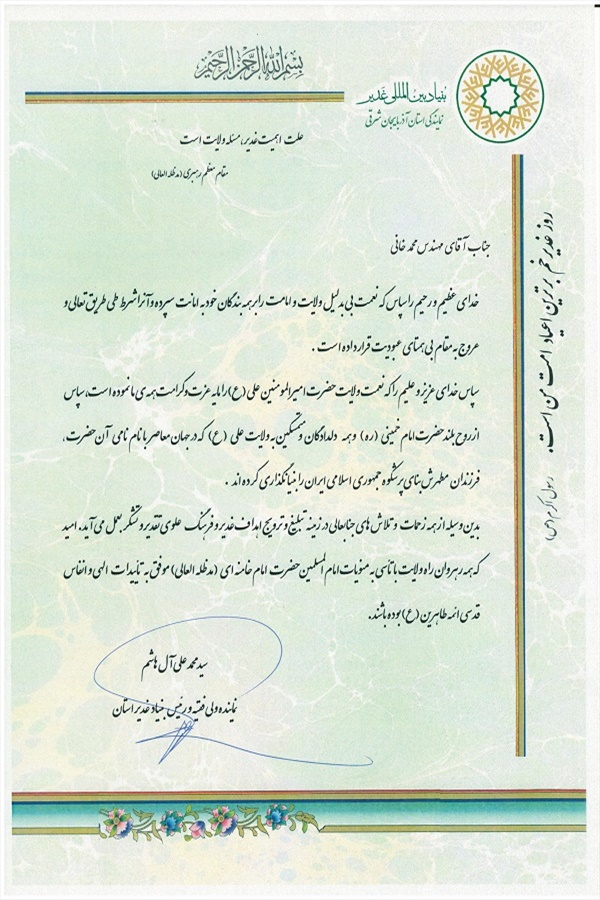 بسم الله الرحمن الرحیم
بنیاد بین المللی غدیر
نمایندگی استان آذربایجان شرقی
علت اهمیت غدیر، مسئله ولایت است
مقام معظم رهبری (مدظله العالی)
روز غدیر خم برترین اعیاد امت من است.
رسول اکرم (ص)
جناب آقای مهندس محمد خانی
خدای عظیم و رحیم را سپاس که نعمت بی بدلیل ولایت و امامت را بر همه بندگان خود به امانت سپرده و آنرا شرط طی طریق تعالی و
عروج به مقام بی همتای عبودیت قرار داده است .
سپاس خدای عزیز و علیم را که نعمت ولایت حضرت امیرالمومنین علی (ع) را مایه عزت و کرامت همه ی ما نموده است، سپاس
از روح بلند حضرت امام خمینی (ره) و همه دلدادگان و متمسکین به ولایت علی (ع) که در جهان معاصر با نام نامی آن حضرت ،
فرزندان مطهرش بنای پرشکوه جمهوری اسلامی ایران را بنیانگذاری کرده اند .
بدین وسیله از همه زحمات و تلاش های جنابعالی در زمینه تبلیغ و ترویج اهداف غدیر و فرهنگ علوی تقدیر و تشکر بعمل می آید. امید
که همه رهروان راه ولایت با تاسی به منویات امام المسلمین حضرت امام خامنه ای (مدظله العالی) موفق به تأییدات الهی و انفاس
قدسی ائمه طاهرین (ع) بوده باشند.
سید محمد علی آل هاشم
نماینده ولی فقیه و رئیس بنیاد غدیر استان